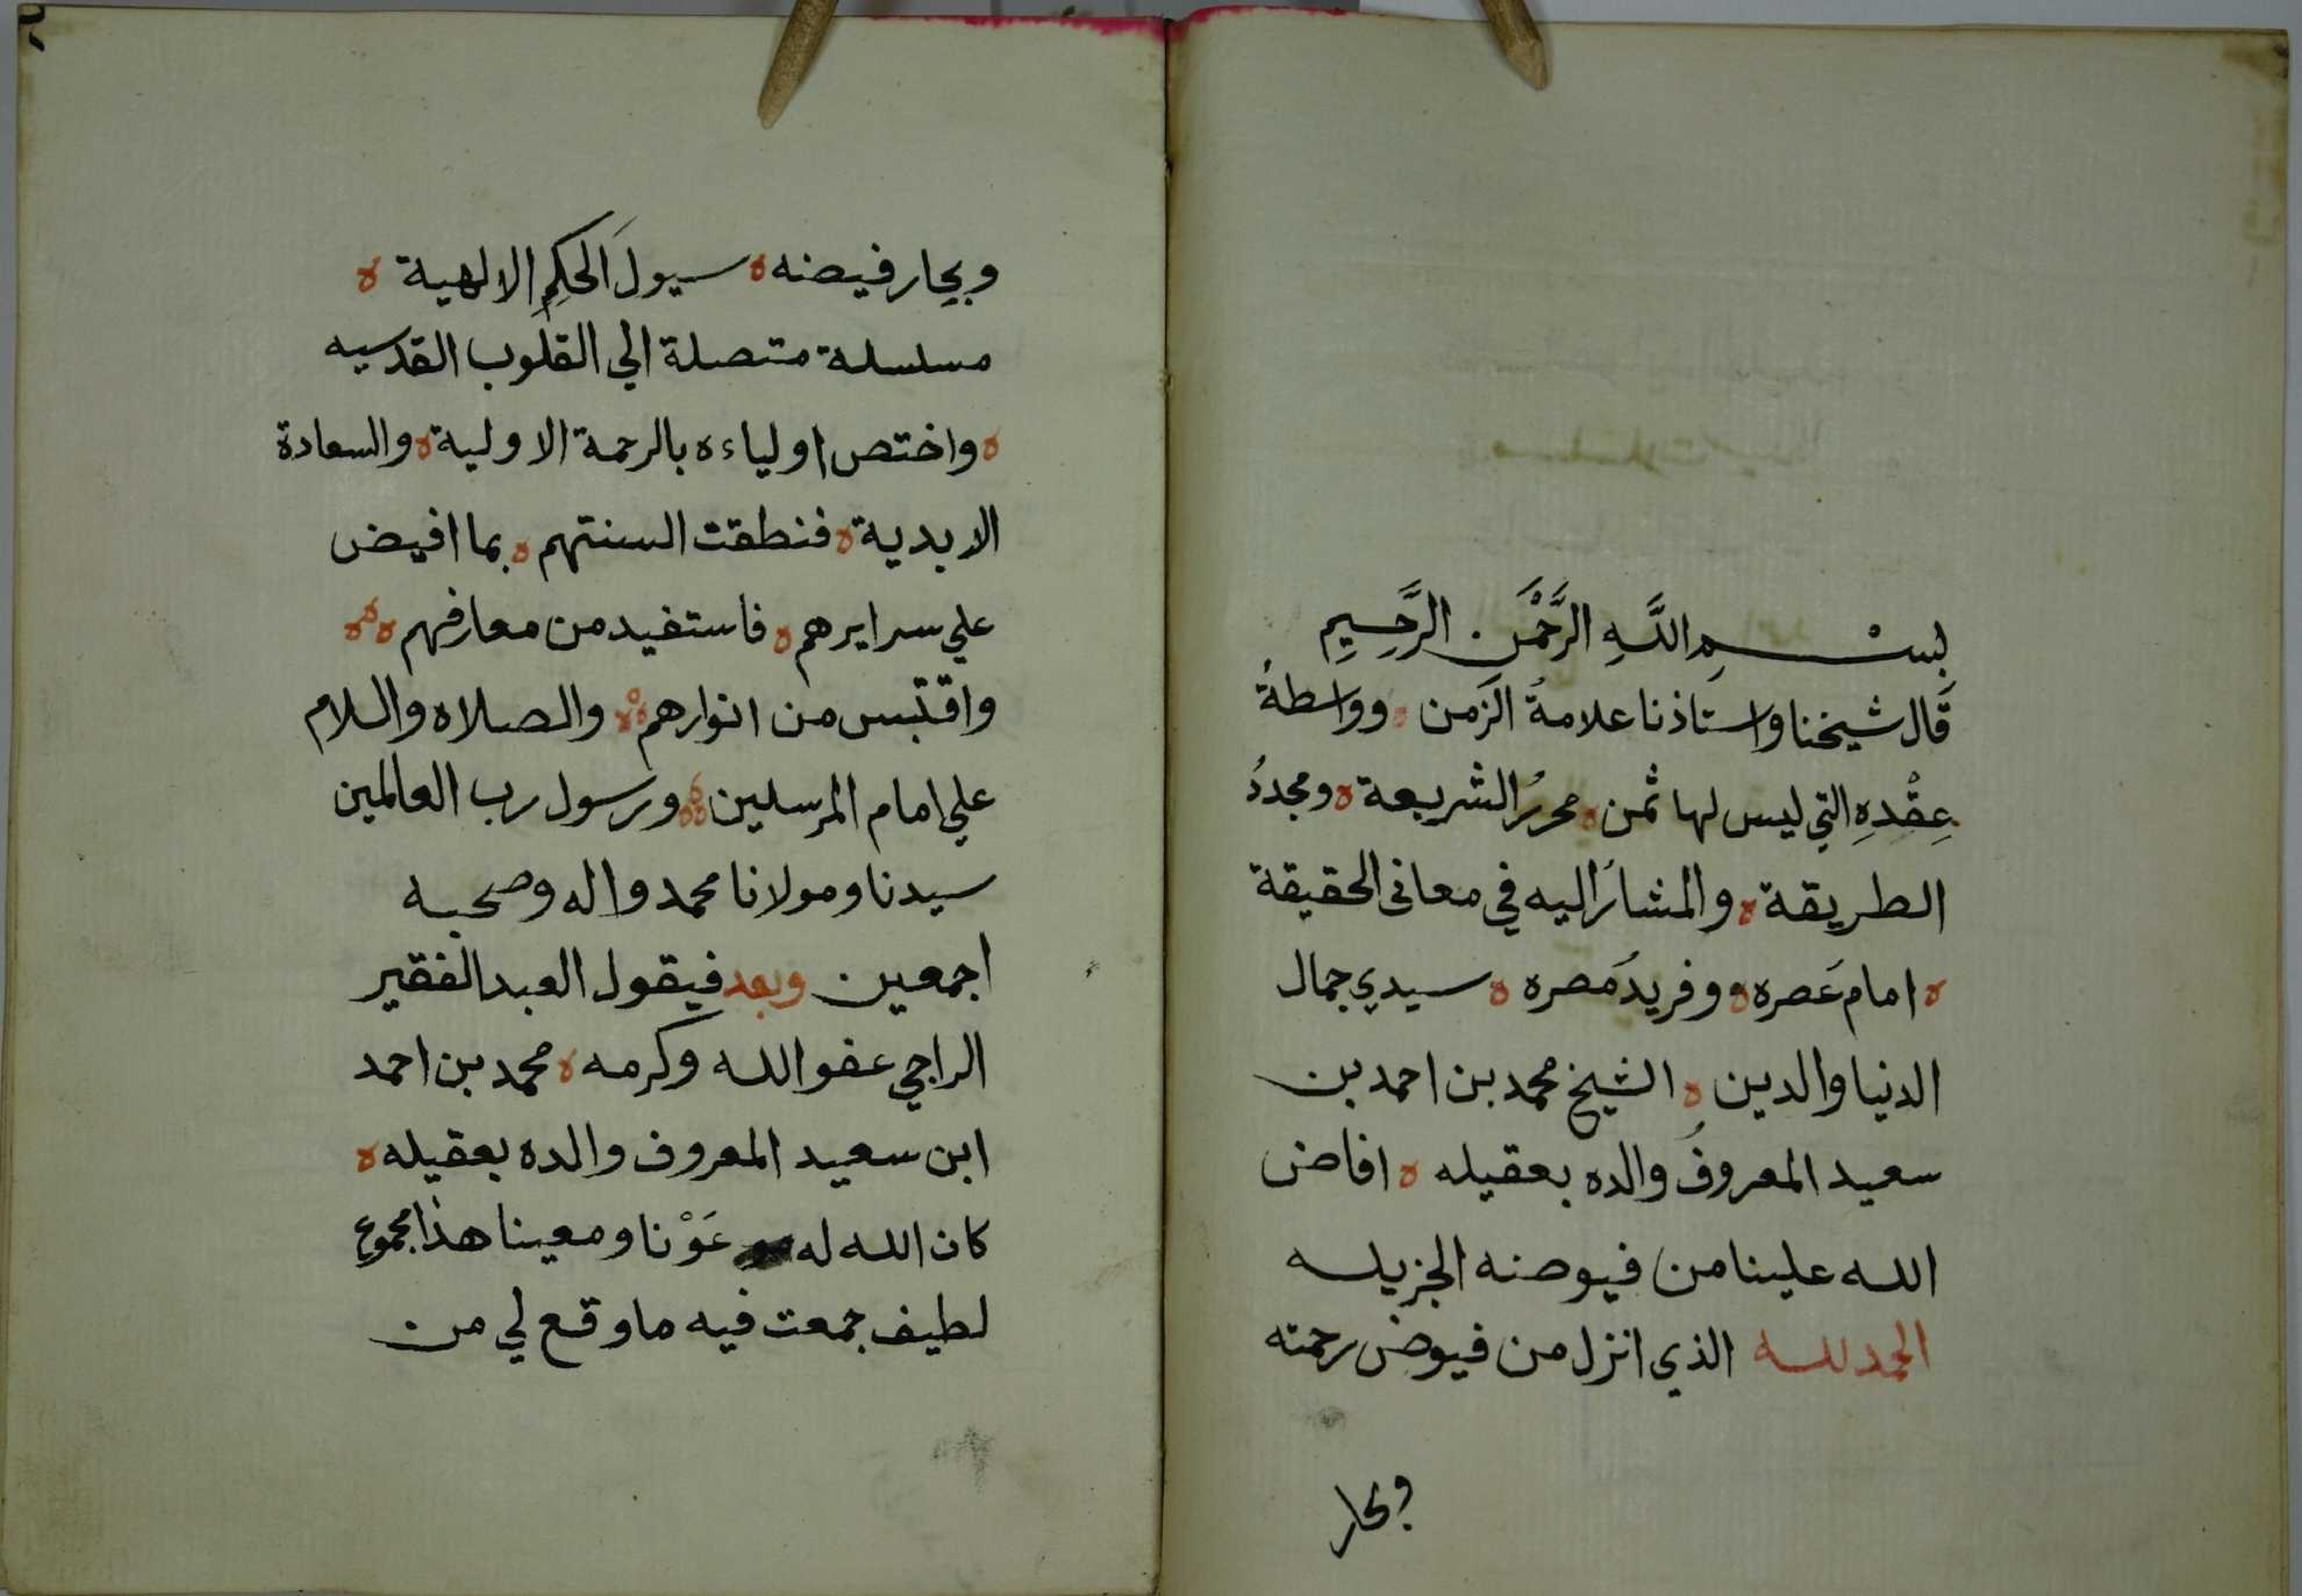 بِسْمِ اللَّهِ الرَّحْمَنِ الرَّحِيمِ
قَال شيخنا واستاذنا علامةُ الزَمن ه وواسطةُ
عِقْدِهِ التي ليس لها ثمن ه محررُ الشريعة ه ومجددُ
الطريقة ه والمشارُ اليه في معاني الحقيقة
ه امام عَصره ه وفريدُ مَصره ه سيدي جمال
الدنيا والدين ه الشيخ محمد بن احمد بن
سعيد المعروفُ والده بعقيله ه افاض
الله علينا من فيوضه الجزيله
الحمد لله الذي انزل من فيوض رحمته
وبحار
وبحِار فيضه ه سيولَ الحكِمِ الالهية ه
مسلسلة متصلة الي القلوب القدسيه
ه واختص اولياءه بالرحمة الاولية ه والسعادة
الابدية ه فنطقت السنتهم ه بما افيض
علي سرايرهم ه فاستفيد من معارفهم ه
واقتبس من انوارهم ه والصلاه والسلام
علي امام المرسلين ه ورسول رب العالمين
سيدنا ومولانا محمد واله وصحبه
اجمعين وبعد فيقول العبد الفقير
الراجي عفو الله وكرمه ه محمد بن احمد
ابن سعيد المعروف والده بعقيله ه
كان الله له عَوْنا ومعينا هذا مجموع
لطيف جمعت فيه ما وقع لي من